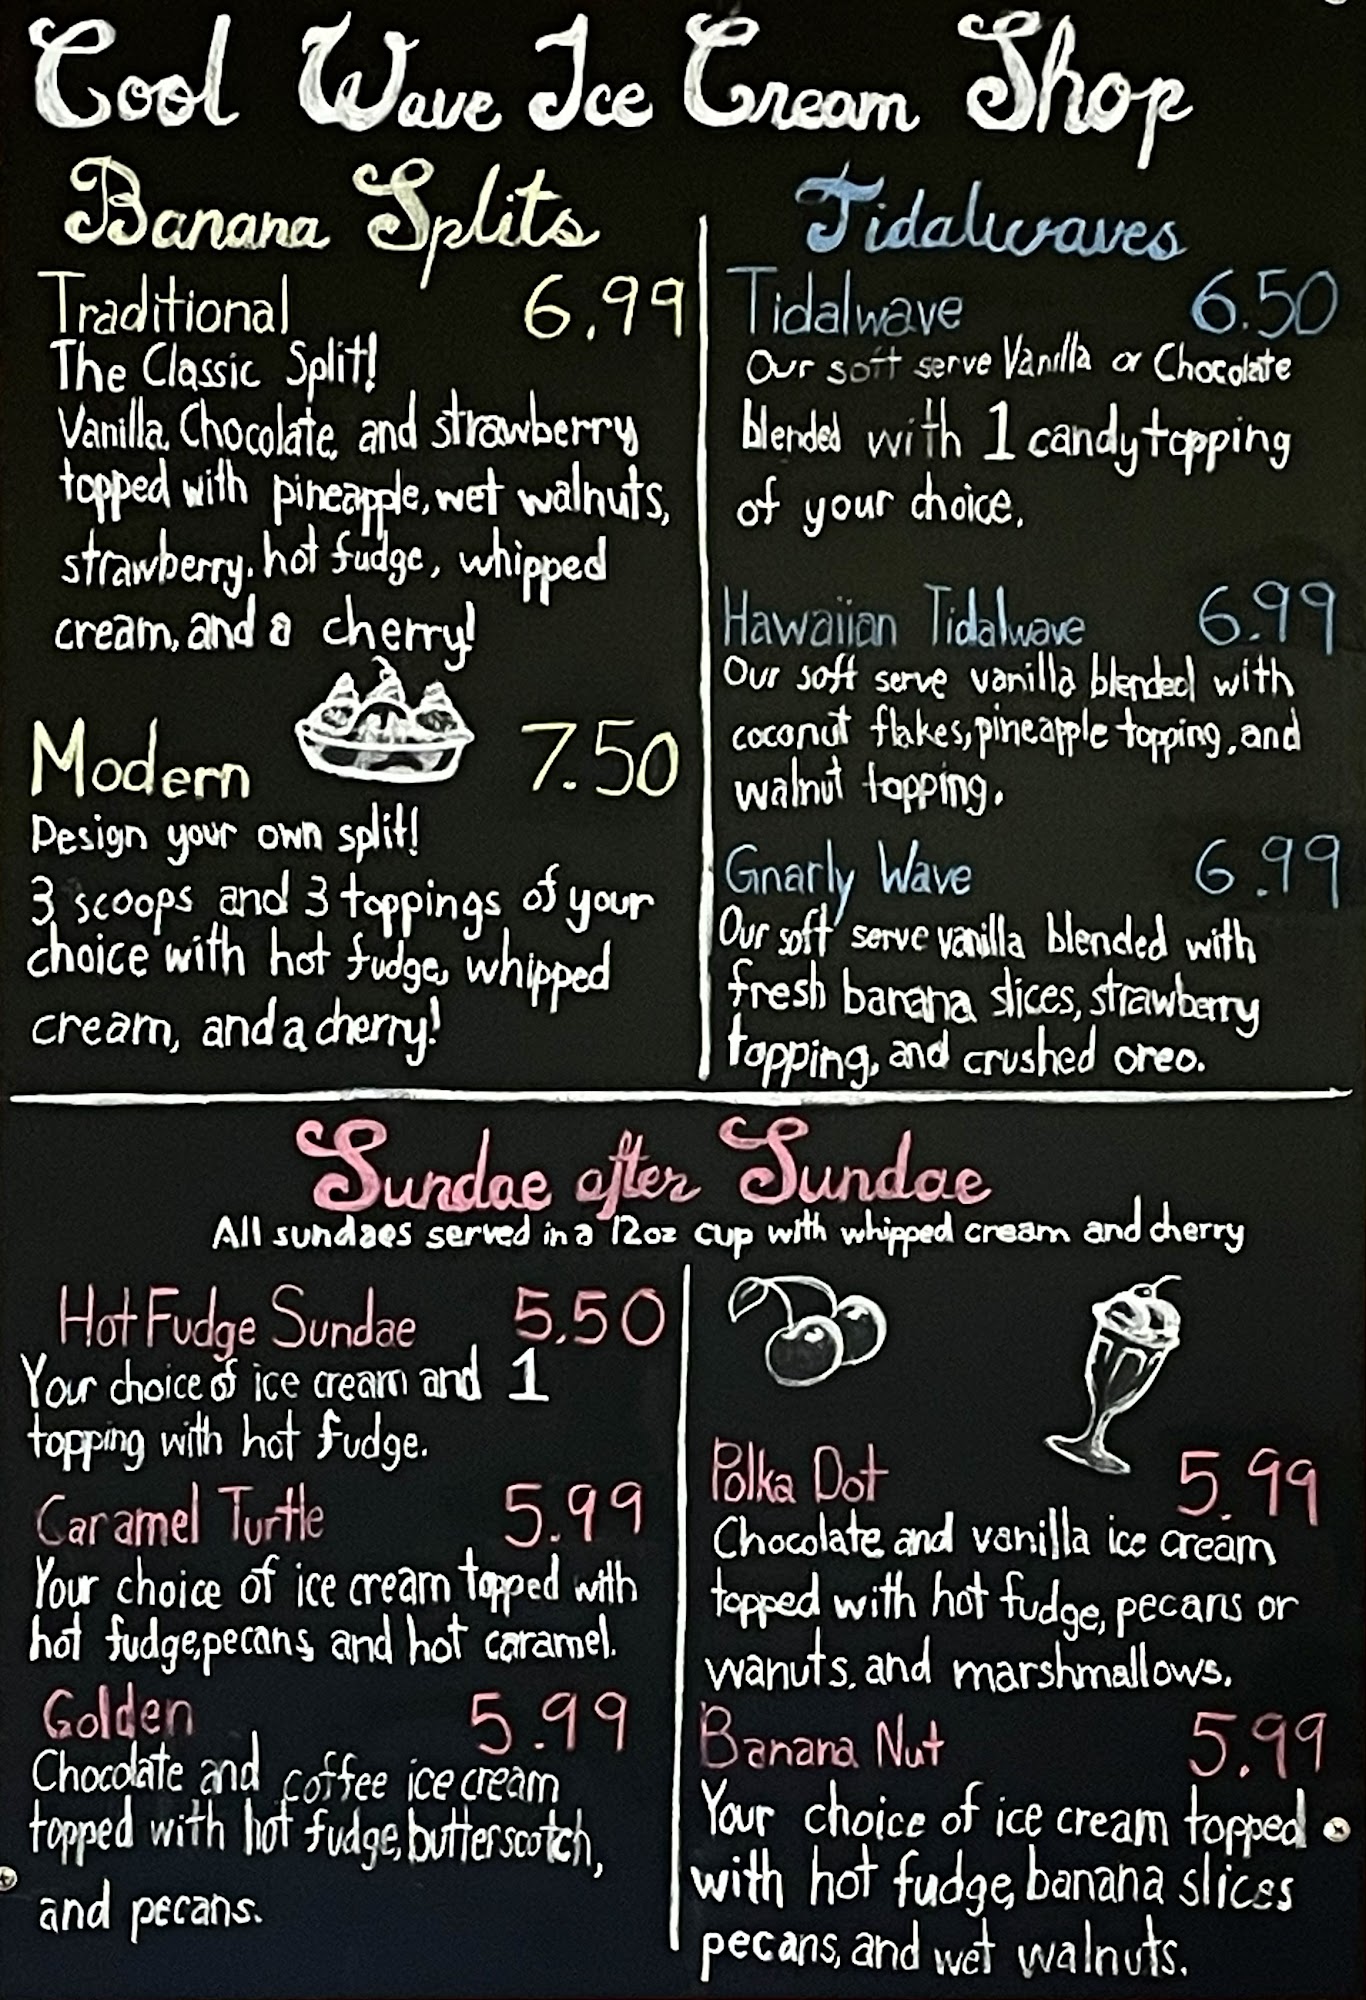 Cool Wave Ice Cream Shop
Banana Splits
Traditional 6.99
The Classic Split!
Vanilla, Chocolate, and strawberry
topped with pineapple, wet walnuts,
strawberry, hot fudge, whipped
cream, and a cherry!
Modern 7.50
Design your own split!
3 scoops and 3 toppings of your
choice with hot fudge, whipped
cream, and a cherry!
Tidalwaves
Tidalwave 6.50
Our soft serve Vanilla or Chocolate
blended with 1 candy topping
of your choice.
Hawaiian Tidalwave 6.99
Our soft serve vanilla blended with
coconut flakes, pineapple topping, and
walnut topping.
Gnarly Wave 6.99
Our soft serve vanilla blended with
fresh banana slices, strawberry
topping, and crushed oreo.
Sundae after Sundae
All sundaes served in a 12oz cup with whipped cream and cherry
Hot Fudge Sundae 5.50
Your choice of ice cream and 1
topping with hot fudge.
Caramel Turtle 5.99
Your choice of ice cream topped with
hot fudge, pecans, and hot caramel.
Golden 5.99
Chocolate and coffee ice cream
topped with hot fudge, butterscotch,
and pecans.
Polka Dot 5.99
Chocolate and vanilla ice cream
topped with hot fudge, pecans or
wanuts, and marshmallows.
Banana Nut 5.99
Your choice of ice cream topped
with hot fudge, banana slices
pecans, and wet walnuts.